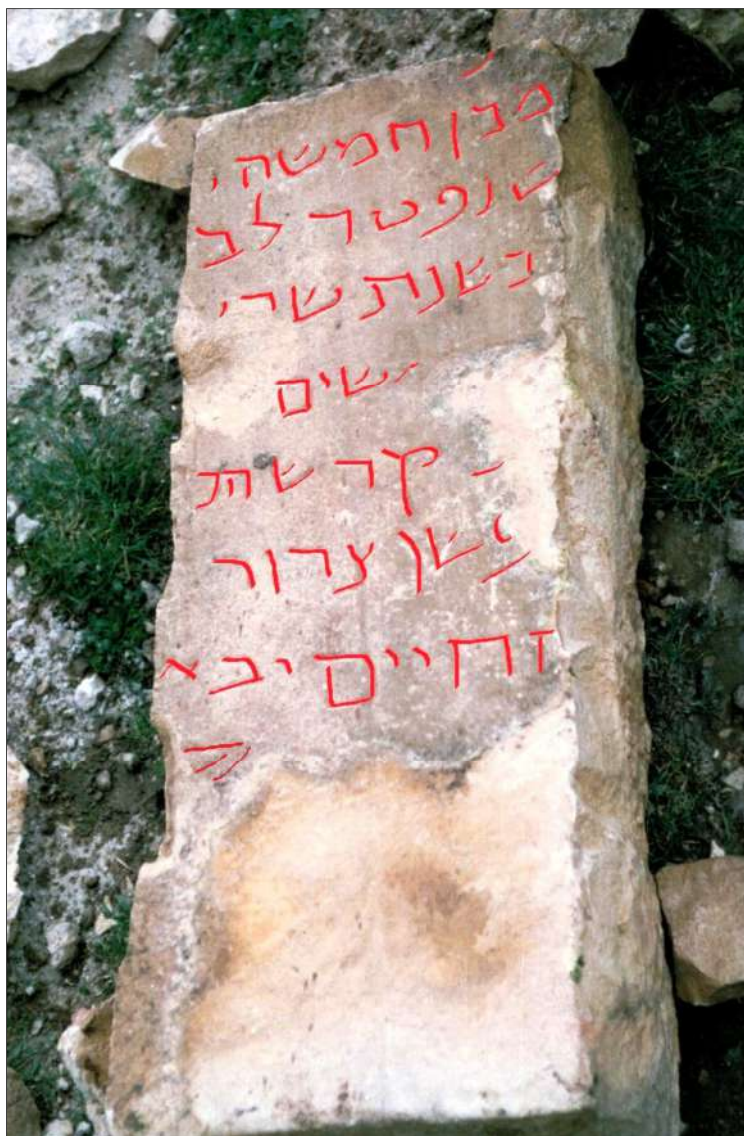 מבן חמשה
שנפטר לב
בשנת שר
שים
קדשת
פשן צרור
החיים יבא